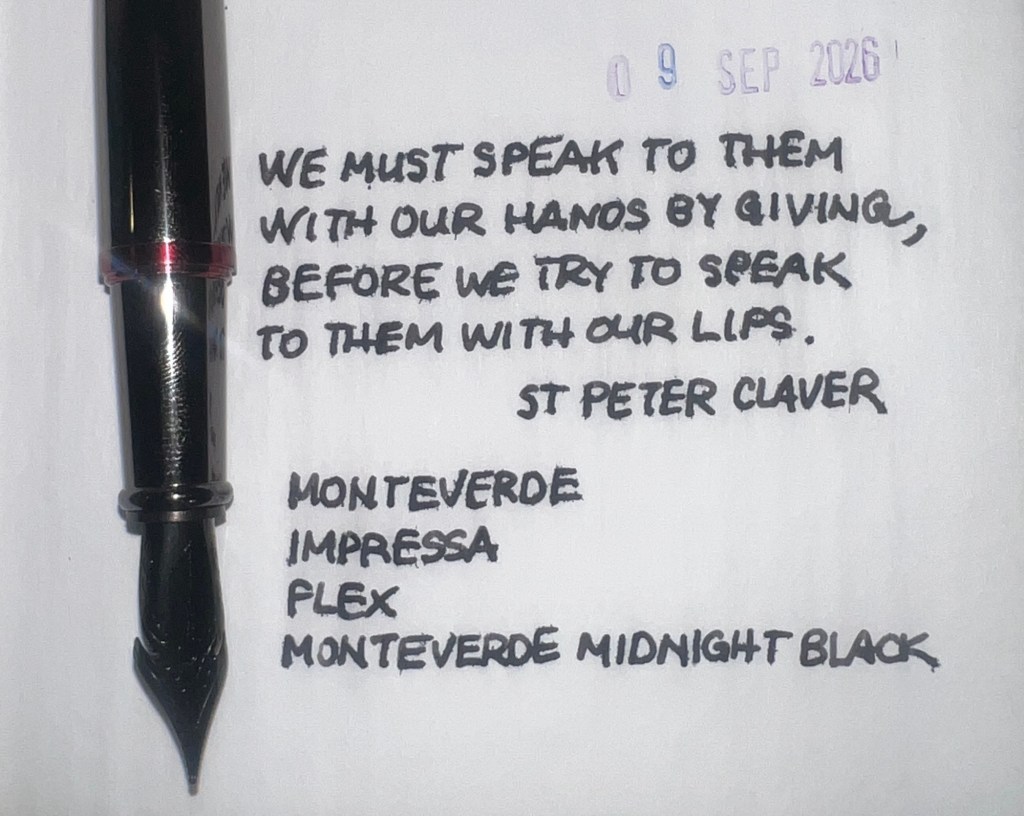 09 SEP 2026
WE MUST SPEAK TO THEM
WITH OUR HANDS BY GIVING,
BEFORE WE TRY TO SPEAK
TO THEM WITH OUR LIPS.
ST PETER CLAVER
MONTEVERDE
IMPRESSA
FLEX
MONTEVERDE MIDNIGHT BLACK